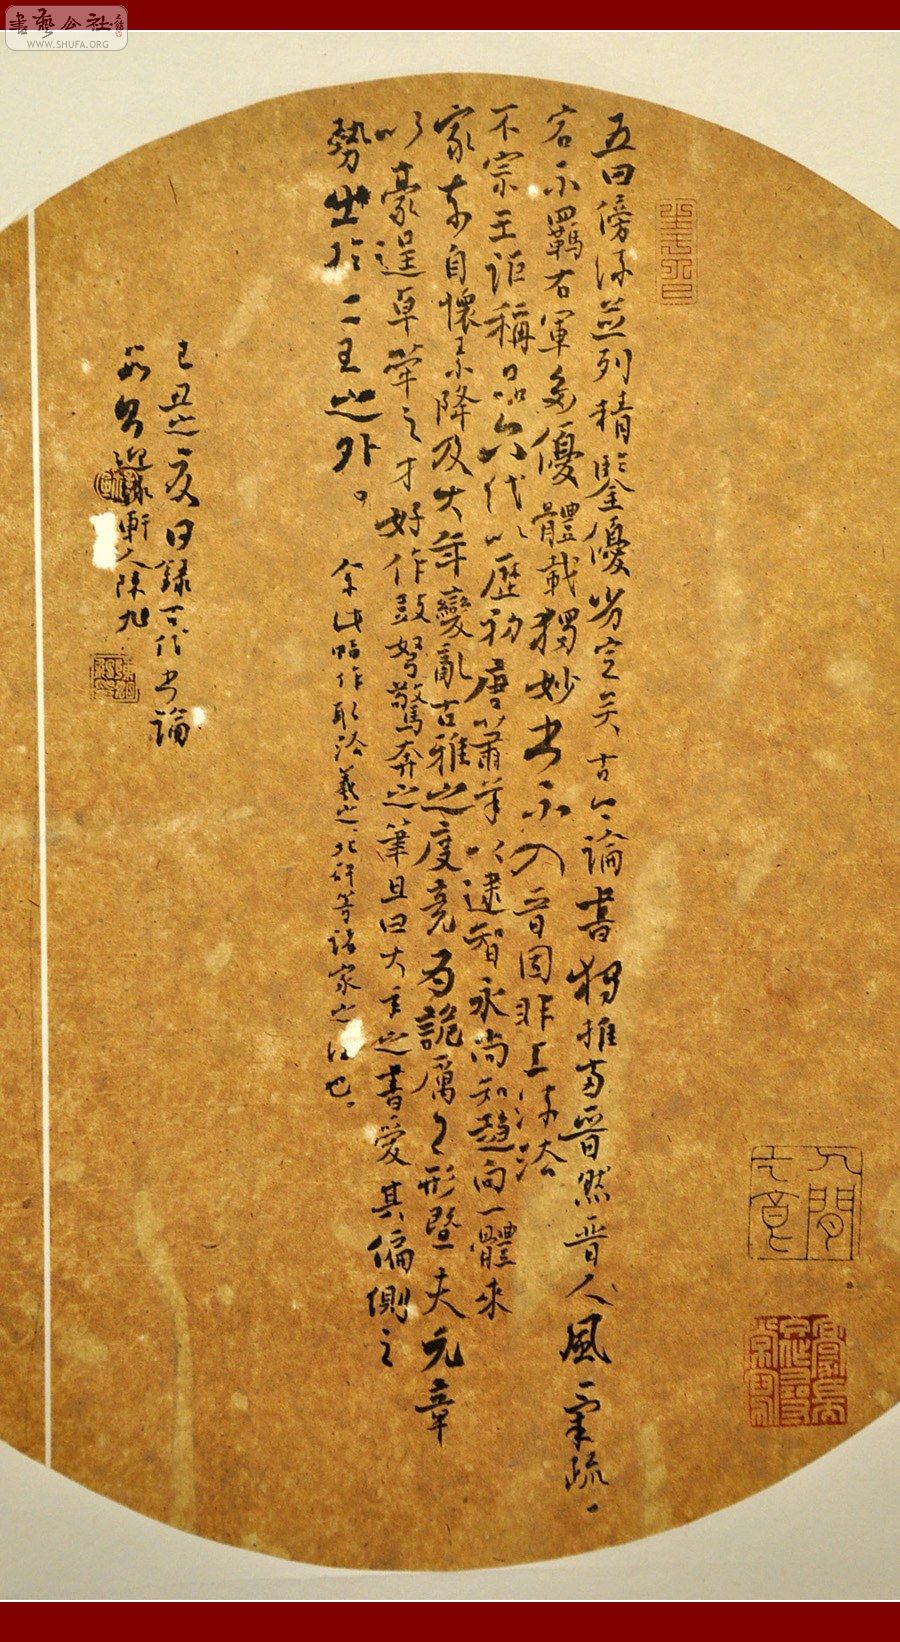 書藝公社
WWW.SHUFA.ORG
五曰傍流並列精鑒優劣定矣古今論書獨推兩晉然晉人風氣疏
宕不羈右軍多優體裁獨妙書不入晉固非上流法
不宗王詎稱品六代以歷初唐蕭羊以逮智永尚知趨向一體來
家奔自懷素降及大年變亂古雅之度竞为詭厲之形暨夫元章
以豪逞卓犖之才好作鼓弩驚奔之筆且曰大令之書愛其偏側之
勢出於二王之外。
余此幅作取法羲之、北
等諸家之
也、
己丑之夏日錄古代書論
於
軒人陳旭